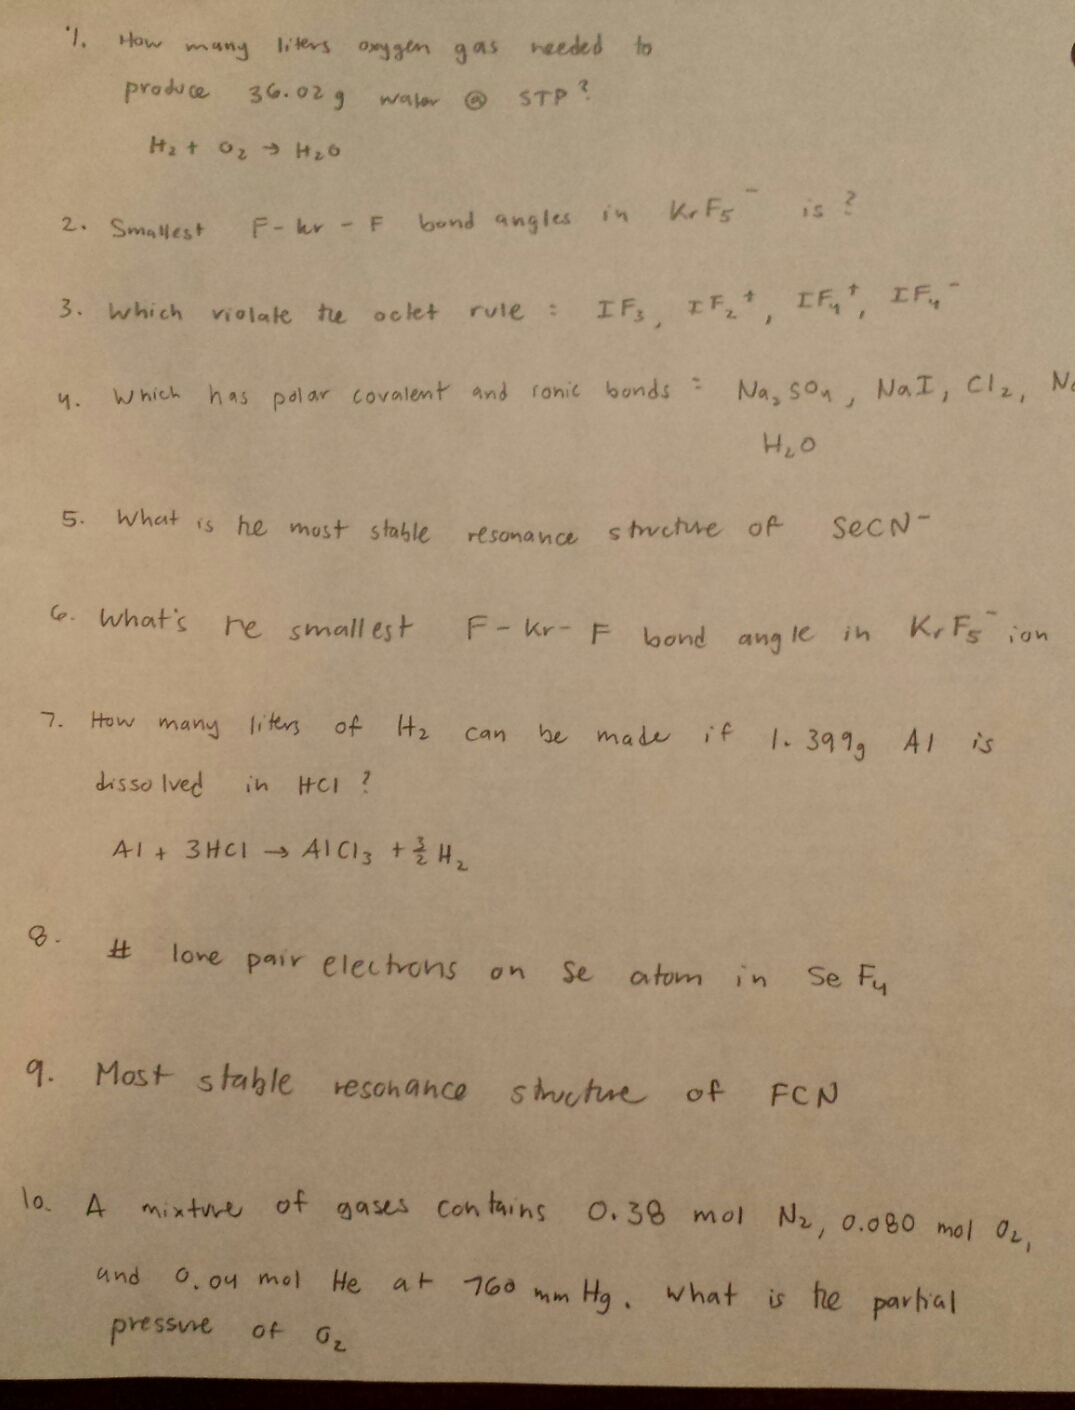 1. How many liters oxygen gas needed to
produce 36.02 g water @ STP?
H₂ + O₂ → H₂O
2. Smallest F-Kr-F bond angles in KrF₅⁻ is ?
3. Which violate the octet rule : IF₃, IF₂⁺, IF₄⁺, IF₄⁻
4. Which has polar covalent and ionic bonds : Na₂SO₄, NaI, Cl₂,
H₂O
5. What is he most stable resonance structure of SeCN⁻
6. What's he smallest F-Kr-F bond angle in KrF₅⁻ ion
7. How many liters of H₂ can be made if 1.399g Al is
dissolved in HCl ?
Al + 3HCl → AlCl₃ + 3/2 H₂
8. # lone pair electrons on Se atom in SeF₄
9. Most stable resonance structure of FCN
10. A mixture of gases contains 0.38 mol N₂, 0.080 mol O₂,
and 0.04 mol He at 760 mm Hg. What is the partial
pressure of O₂